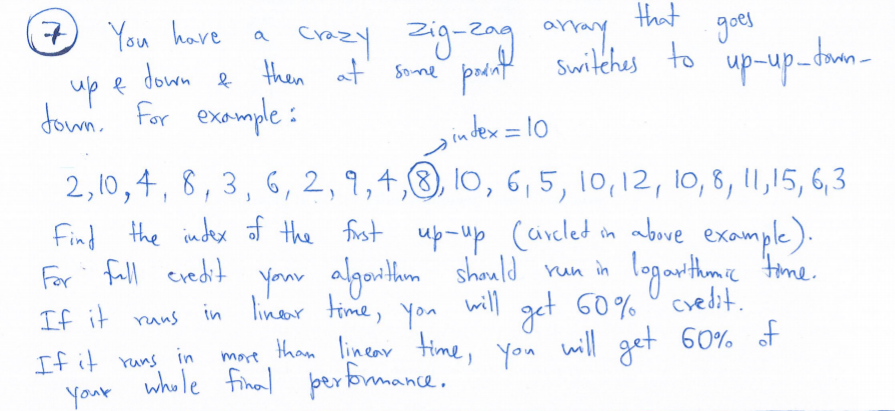 7 You have a crazy zig-zag array that goes
up & down & then at some point switches to up-up-down-
down. For example:
index = 10
2, 10, 4, 8, 3, 6, 2, 9, 4, 8, 10, 6, 5, 10, 12, 10, 8, 11, 15, 6, 3
Find the index of the first up-up (circled in above example).
For full credit your algorithm should run in logarithmic time.
If it runs in linear time, you will get 60% credit.
If it runs in more than linear time, you will get 60% of
your whole final performance.